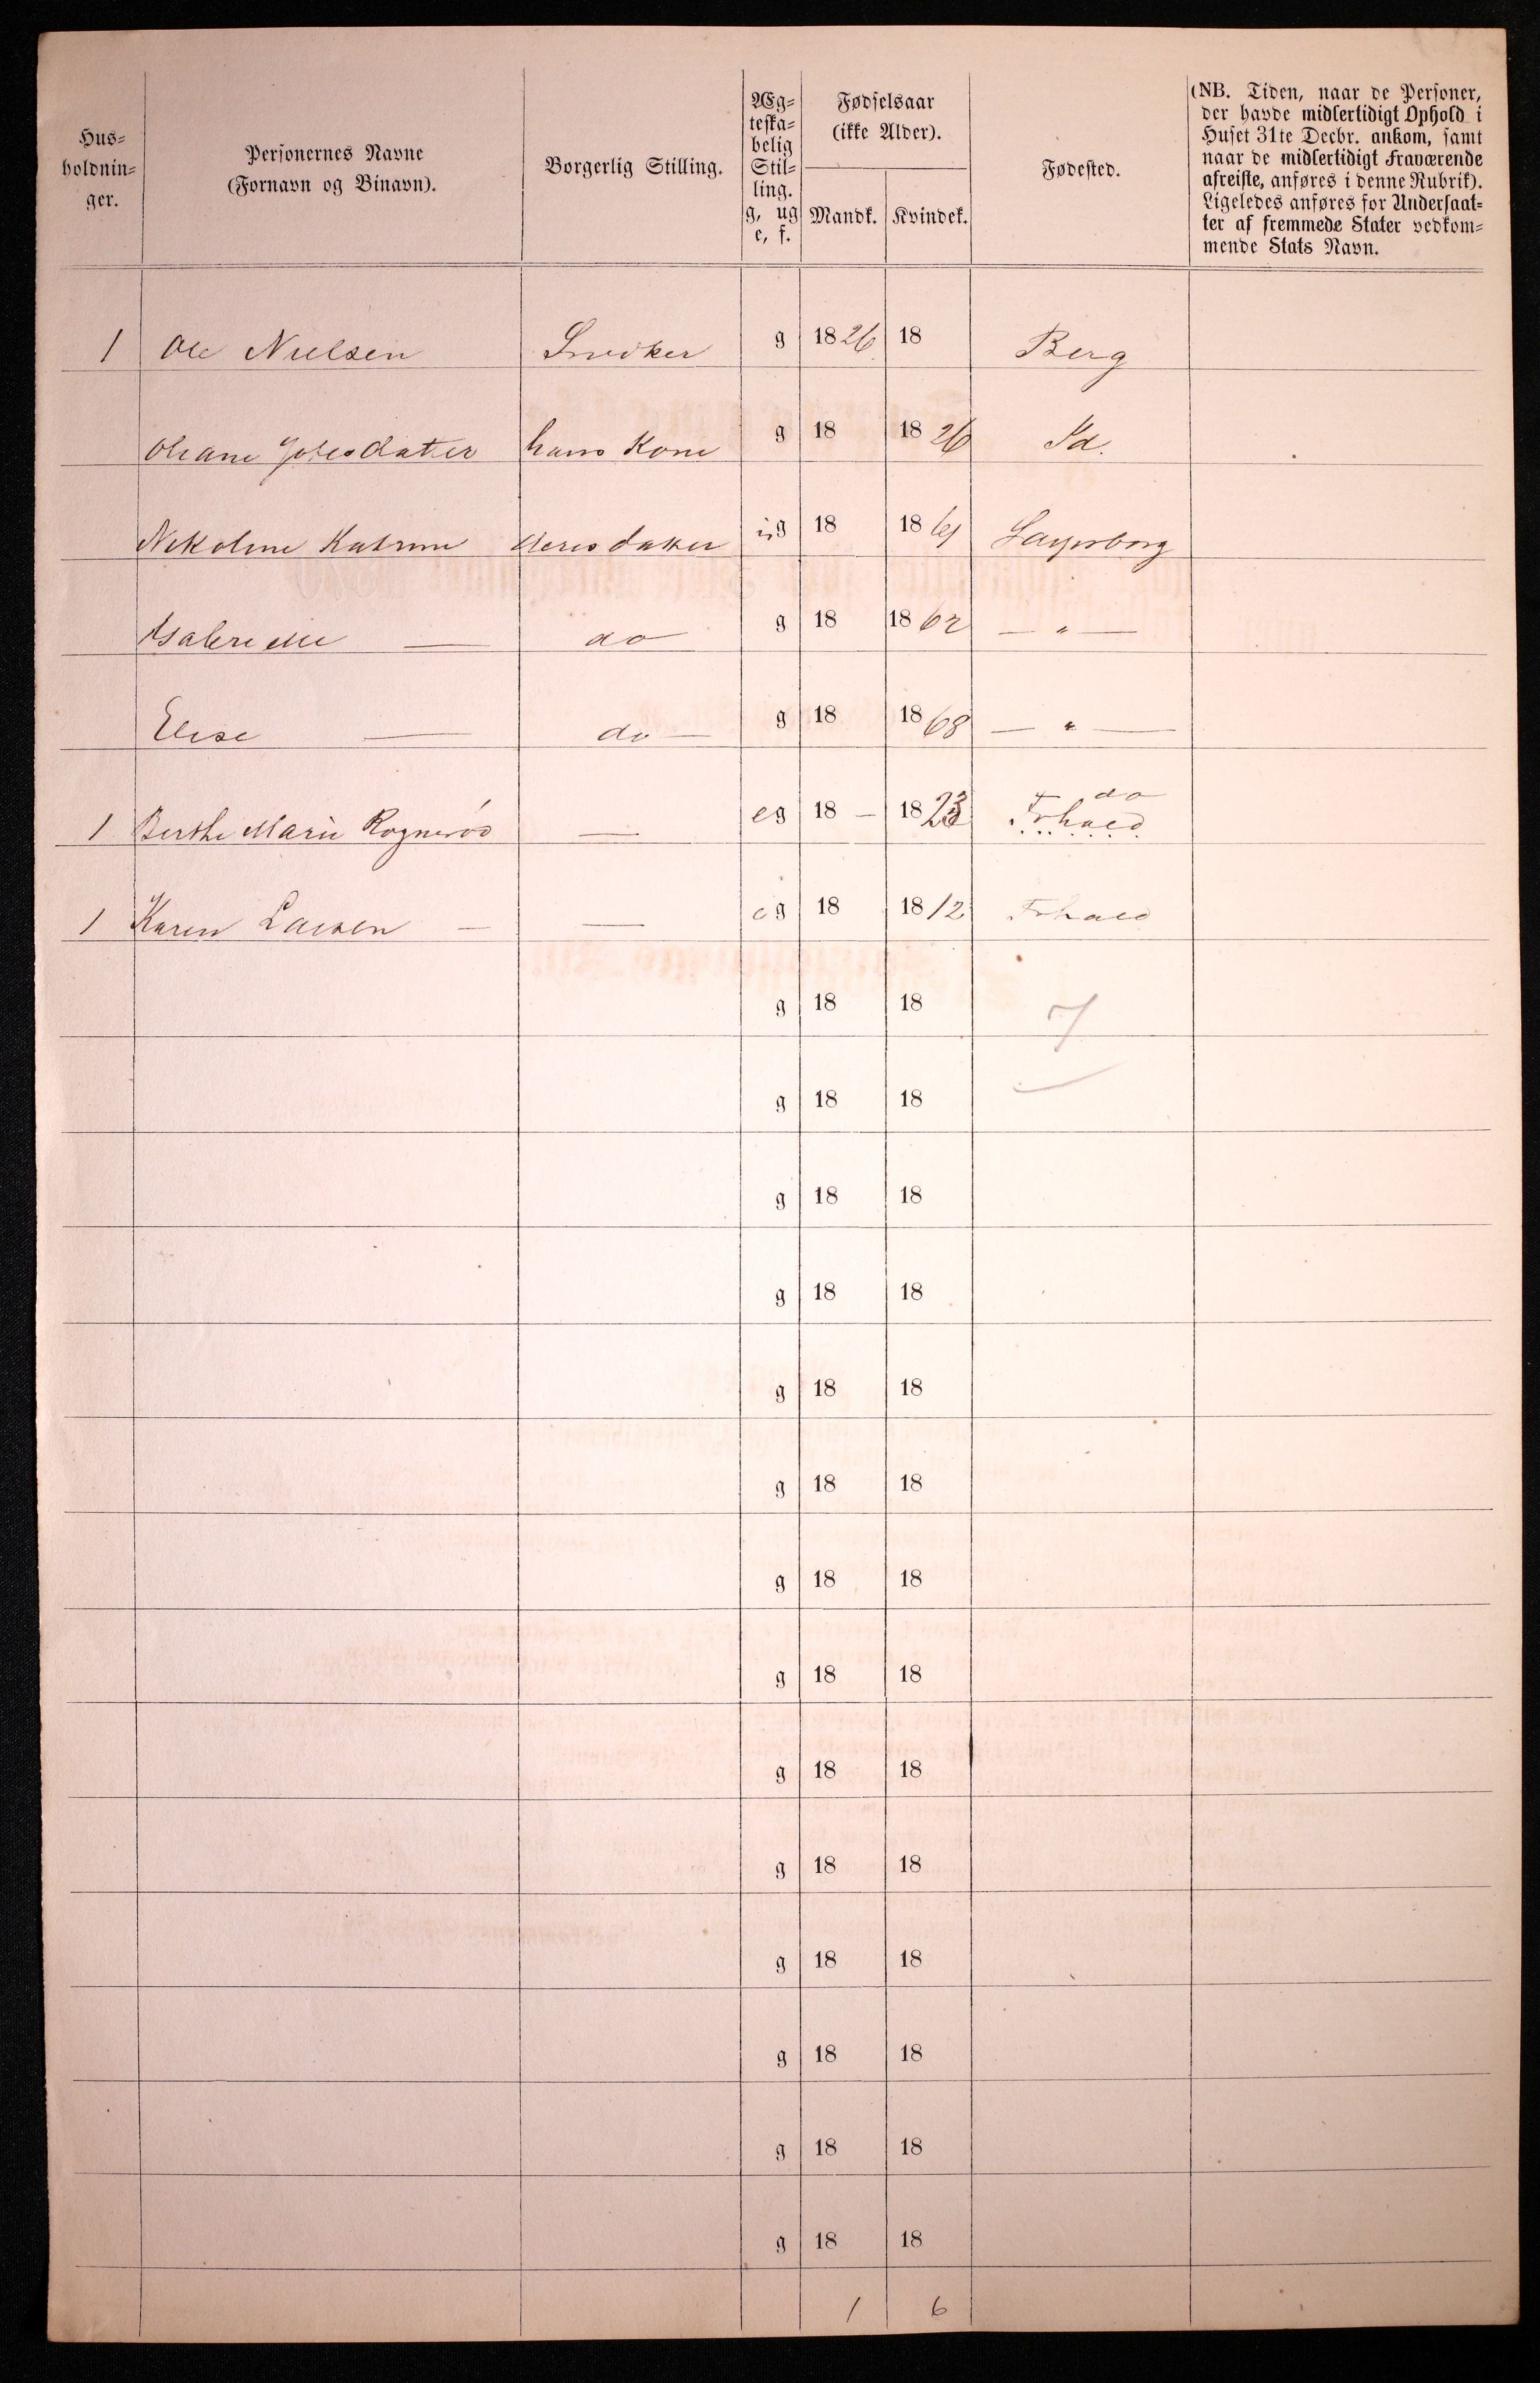 Hus-
holdnin-
ger.
Personernes Navne
(Fornavn og Binavn).
Borgerlig Stilling.
Æg-
teska-
belig
Stil-
ling.
g, ug
e, f.
Fødselsaar
(ikke Alder).
Mandk. Kvindek.
Fødested.
(NB. Tiden, naar de Personer,
der havde midlertidigt Ophold i
Huset 31te Decbr. ankom, samt
naar de midlertidigt Fraværende
afreiste, anføres i denne Rubrik).
Ligeledes anføres for Undersaat-
ter af fremmede Stater vedkom-
mende Stats Navn.
1 Ole Nielsen Snedker g 1826 18 Berg
Oleane hans Kone g 18 1826 Id.
Nikoline Katrine deres datter ug 18 18
— do g 18 1862 — " —
Elise — do — g 18 1868 — " —
do
1 Berthe Marie Rognerød — eg 18 — 1823 Frhald
1 Karen Larsen — — eg 18 1812 Frhald
g 18 18 7
g 18 18
g 18 18
g 18 18
g 18 18
g 18 18
g 18 18
g 18 18
g 18 18
g 18 18
g 18 18
g 18 18
g 18 18
g 18 18
1 6